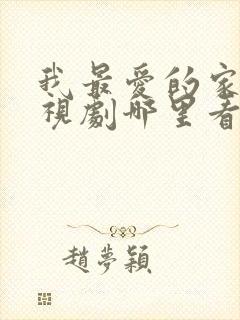 我最愛的家
視劇哪里看
趙夢穎